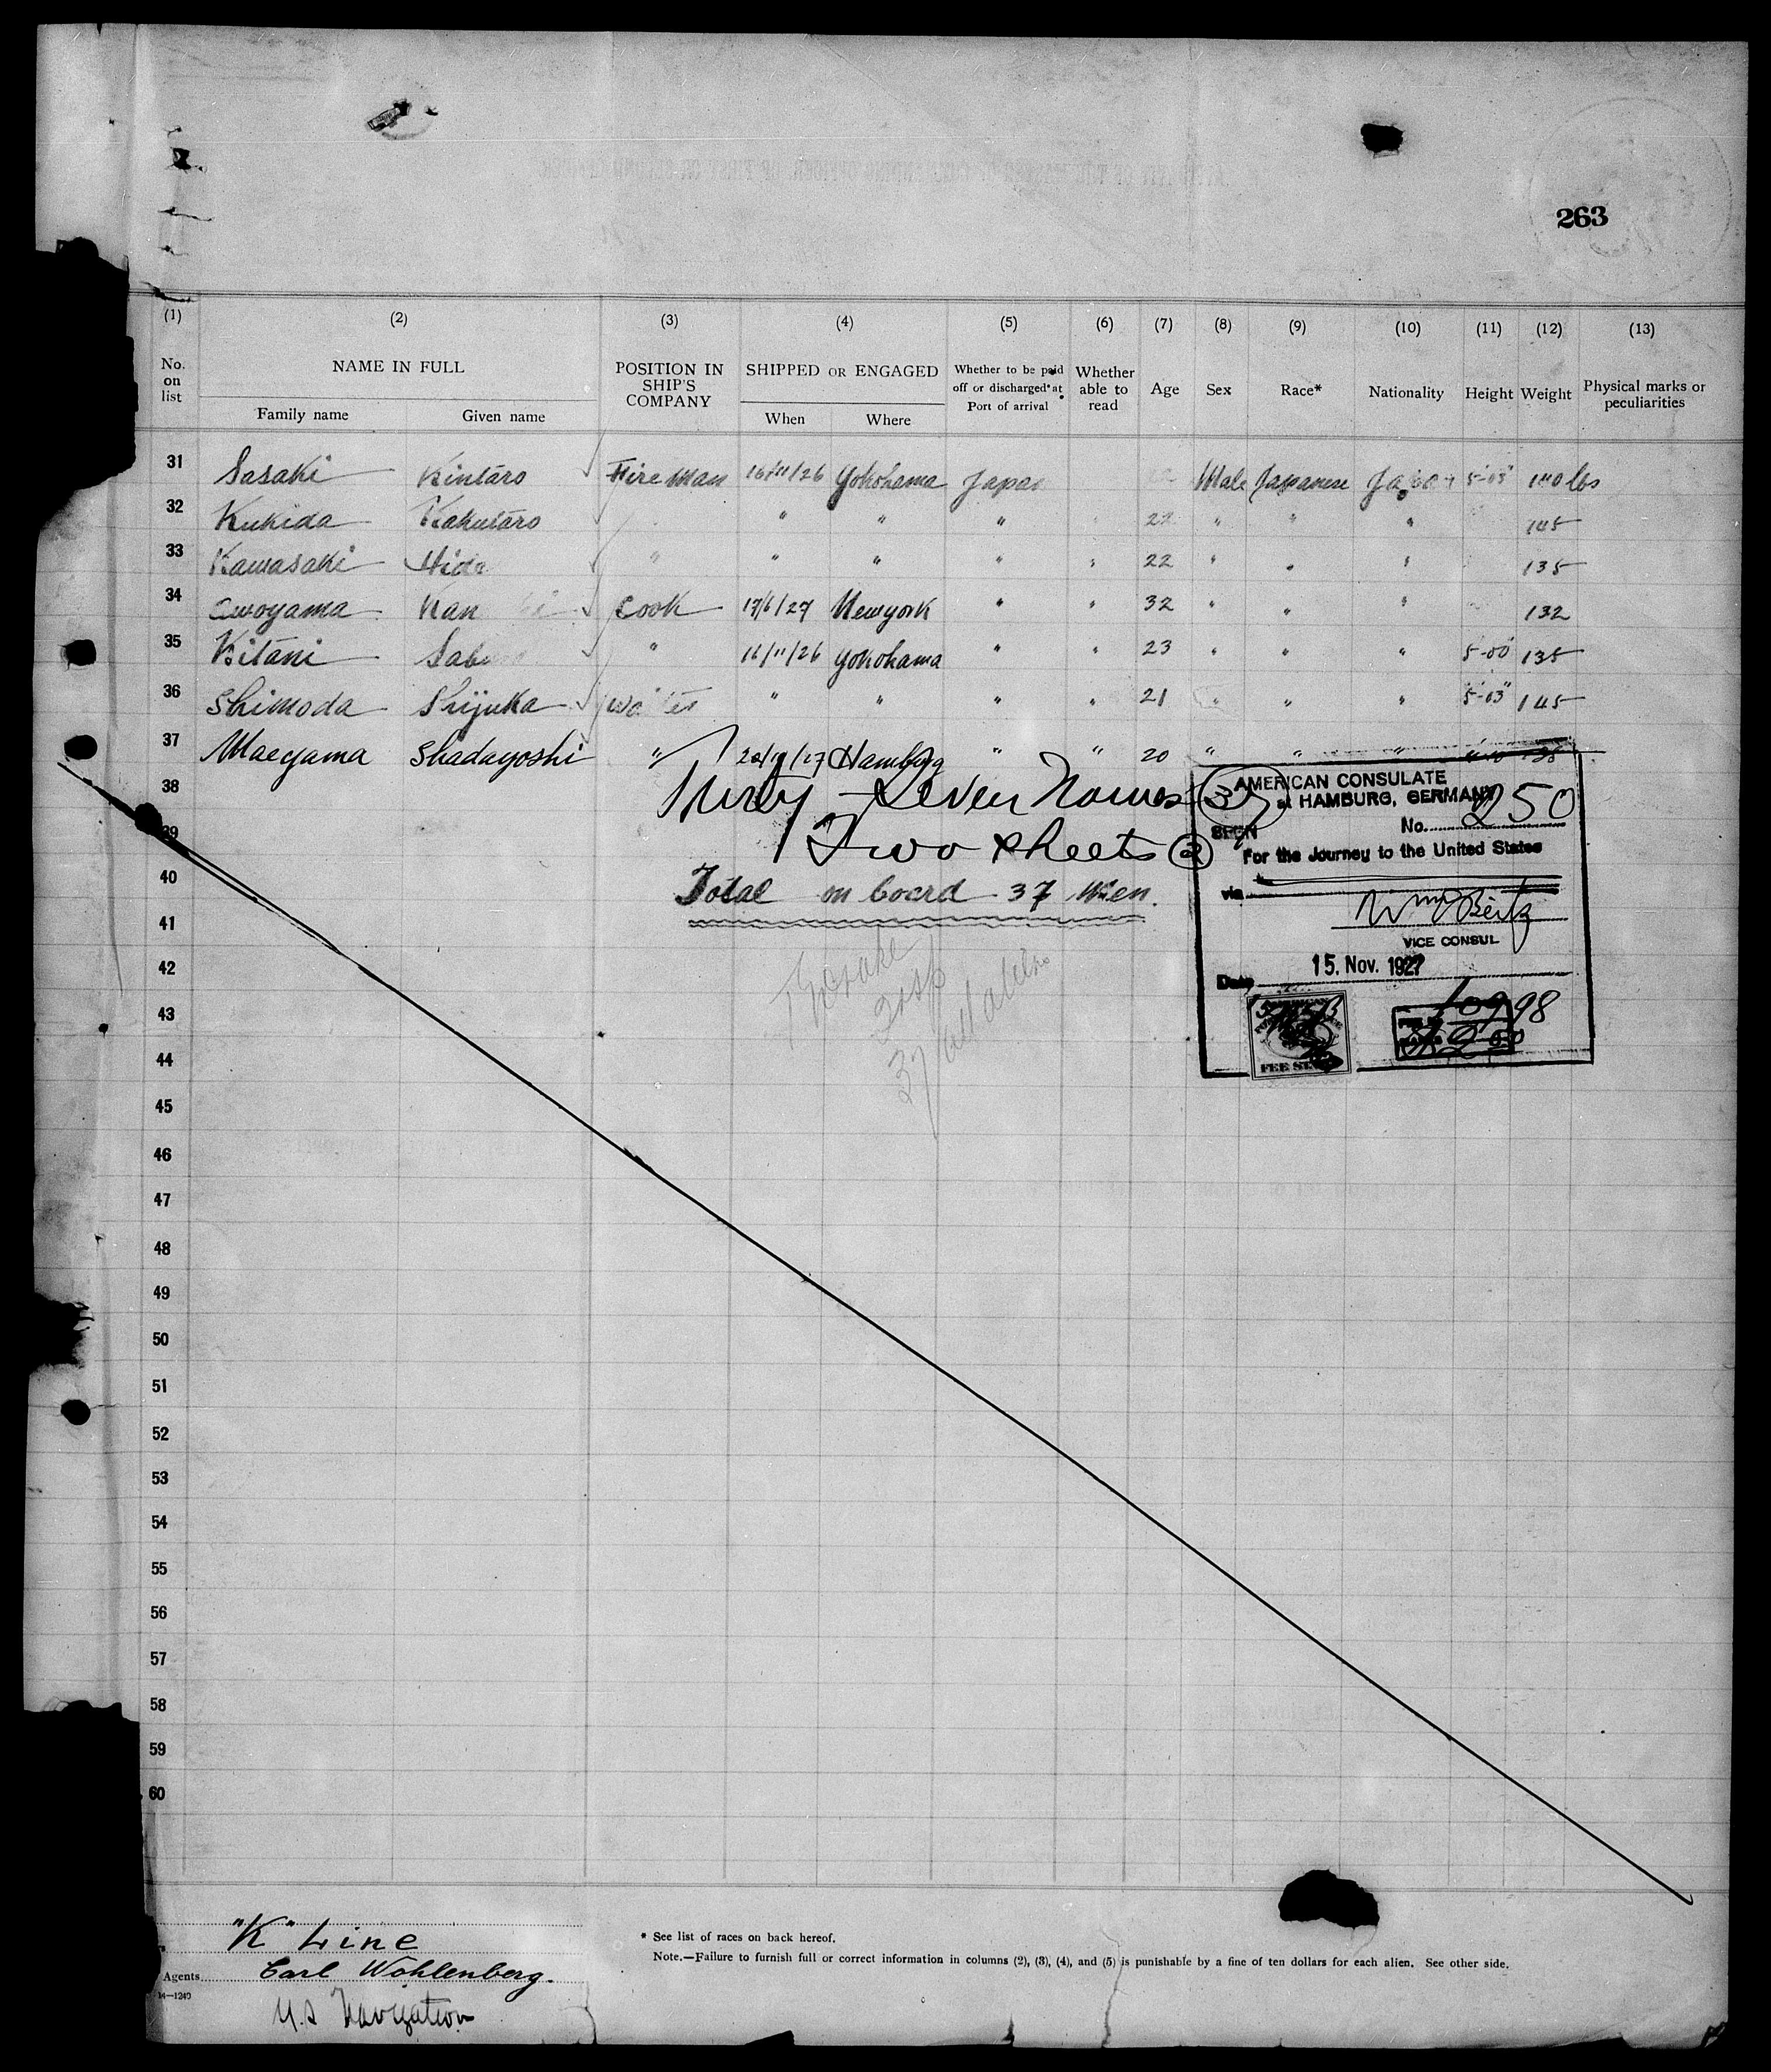 263
(1) (2) (3) (4) (5) (6) (7) (8) (9) (10) (11) (12) (13)
No. on list
NAME IN FULL
Family name Given name
POSITION IN SHIP'S COMPANY
SHIPPED OR ENGAGED
When Where
Whether to be paid off or discharged at Port of arrival
Whether able to read
Age Sex Race* Nationality Height Weight
Physical marks or peculiarities
31 Sasaki Kintaro Fireman 16/11/26 Yokohama Japan Male Japanese Japan 5-03" 140 lbs
32 Kukida Kakutaro " " " 22 " " " 145
33 Kawasaki " " " " " 22 " " " 135
34 Cook 17/6/27 Newyork " " 32 " " " 132
35 Kitani " 16/11/26 Yokohama " " 23 " " " 5-00 135
36 Shimoda Shijuka " " " " 21 " " " 5-03" 145
37 Maeyama Shadayoshi " Hamburg " " 20 " " "
38
39
40
41
42
43
44
45
46
47
48
49
50
51
52
53
54
55
56
57
58
59
60
Thirty-seven Names (37)
Two sheets (2)
Total on board 37 Men.
AMERICAN CONSULATE
at HAMBURG, GERMANY
SEEN No. 250
For the Journey to the United States
via
VICE CONSUL
Date 15. Nov. 1927
FEE STAMP
"K" Line
Agents Carl Wohlenberg.
14—1240
U.S Navigation
* See list of races on back hereof.
Note.—Failure to furnish full or correct information in columns (2), (3), (4), and (5) is punishable by a fine of ten dollars for each alien. See other side.